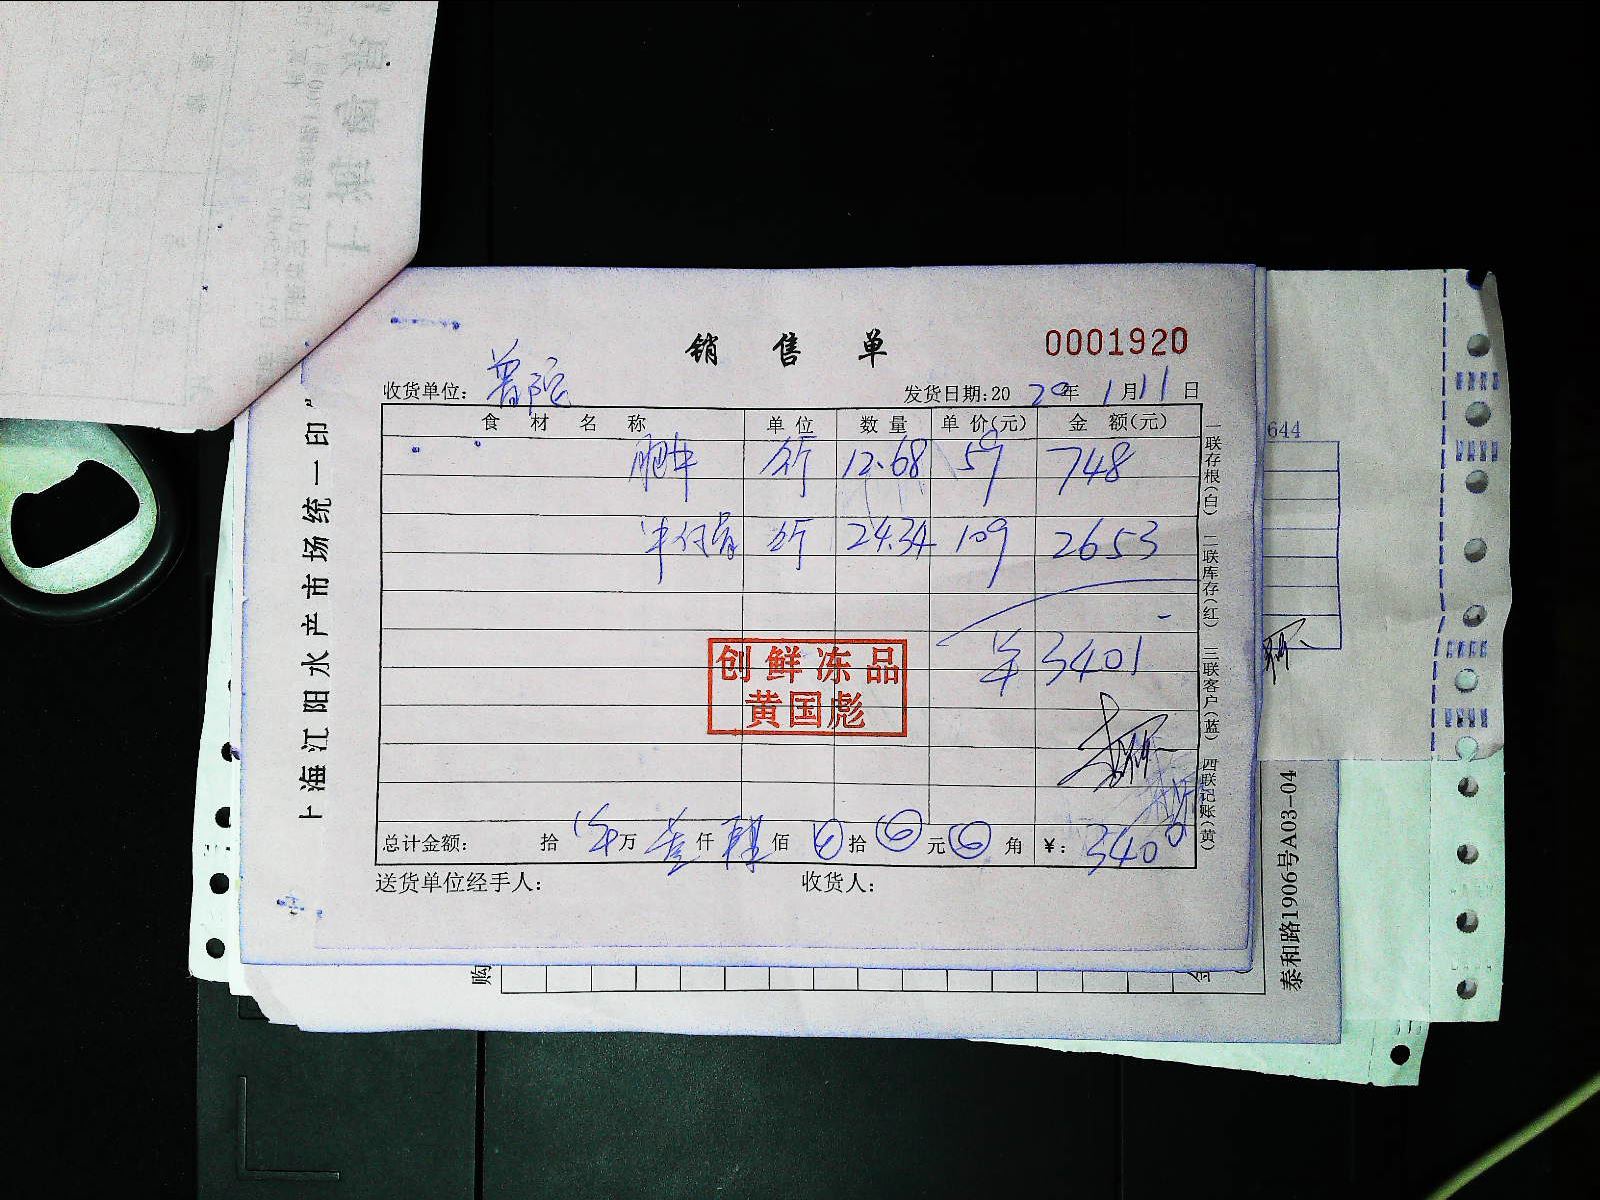 销售单
0001920
收货单位: 普陀
发货日期:2020年1月11日
食材名称 单位 数量 单价(元) 金额(元)
肥牛 斤 12.68 59 748
牛仔骨 斤 24.34 109 2653
¥3401
创鲜冻品
黄国彪
总计金额: 拾 万 叁仟 肆佰 拾 元 角 ¥: 3400
送货单位经手人: 收货人:
上海江阳水产市场统一印
一联存根(白) 二联库存(红) 三联客户(蓝) 四联记账(黄)
644
泰和路1906号A03-04
购